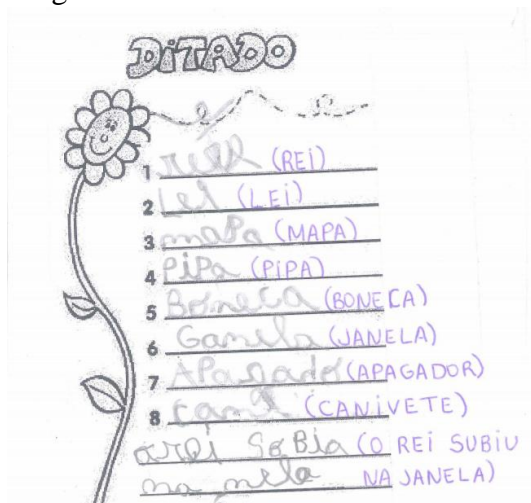 DITADO
1 reii (REI)
2 Lei (LEI)
3 maPa (MAPA)
4 PiPa (PIPA)
5 Boneca (BONECA)
6 Ganela (JANELA)
7 APagado (APAGADOR)
8 (CANIVETE)
orei SoBia (O REI SUBIU
na nela NA JANELA)